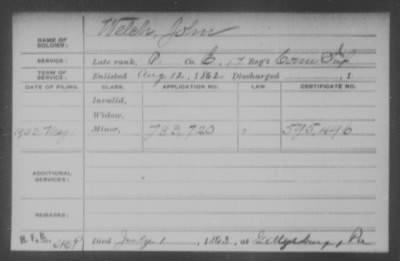 NAME OF SOLDIER: Welch, John
SERVICE: Late rank, P. Co. C, 17 Reg't Conn Inf
TERM OF SERVICE: Enlisted Aug 12, 1862 Discharged , 1
DATE OF FILING. CLASS. APPLICATION NO. LAW. CERTIFICATE NO.
Invalid,
Widow,
1902 May Minor, 783,723 595,496
ADDITIONAL SERVICES:
REMARKS:
Died July 1, 1863, at Gettysburg, Pa